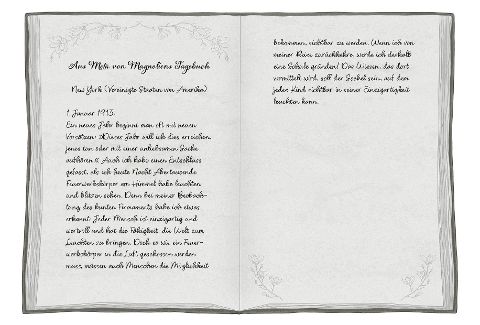 Aus Meta von Magnoliens Tagebuch
New York (Vereinigte Staaten von Amerika)
1. Januar 1913:
Ein neues Jahr beginnt man oft mit neuen
Vorsätzen: »Dieses Jahr will ich dies erreichen,
jenes tun oder mit einer unliebsamen Sache
aufhören.« Auch ich habe einen Entschluss
gefasst, als ich heute Nacht Abertausende
Feuerwerkskörper am Himmel habe leuchten
und blitzen sehen. Denn bei meiner Beobach-
tung des bunten Firmaments habe ich etwas
erkannt: Jeder Mensch ist einzigartig und
wertvoll und hat die Fähigkeit, die Welt zum
Leuchten zu bringen. Doch so wie ein Feuer-
werkskörper in die Luft geschossen werden
muss, müssen auch Menschen die Möglichkeit
bekommen, sichtbar zu werden. Wenn ich von
meiner Reise zurückkehre, werde ich deshalb
eine Schule gründen! Das Wissen, das dort
vermittelt wird, soll der Sockel sein, auf dem
jedes Kind sichtbar in seiner Einzigartigkeit
leuchten kann.